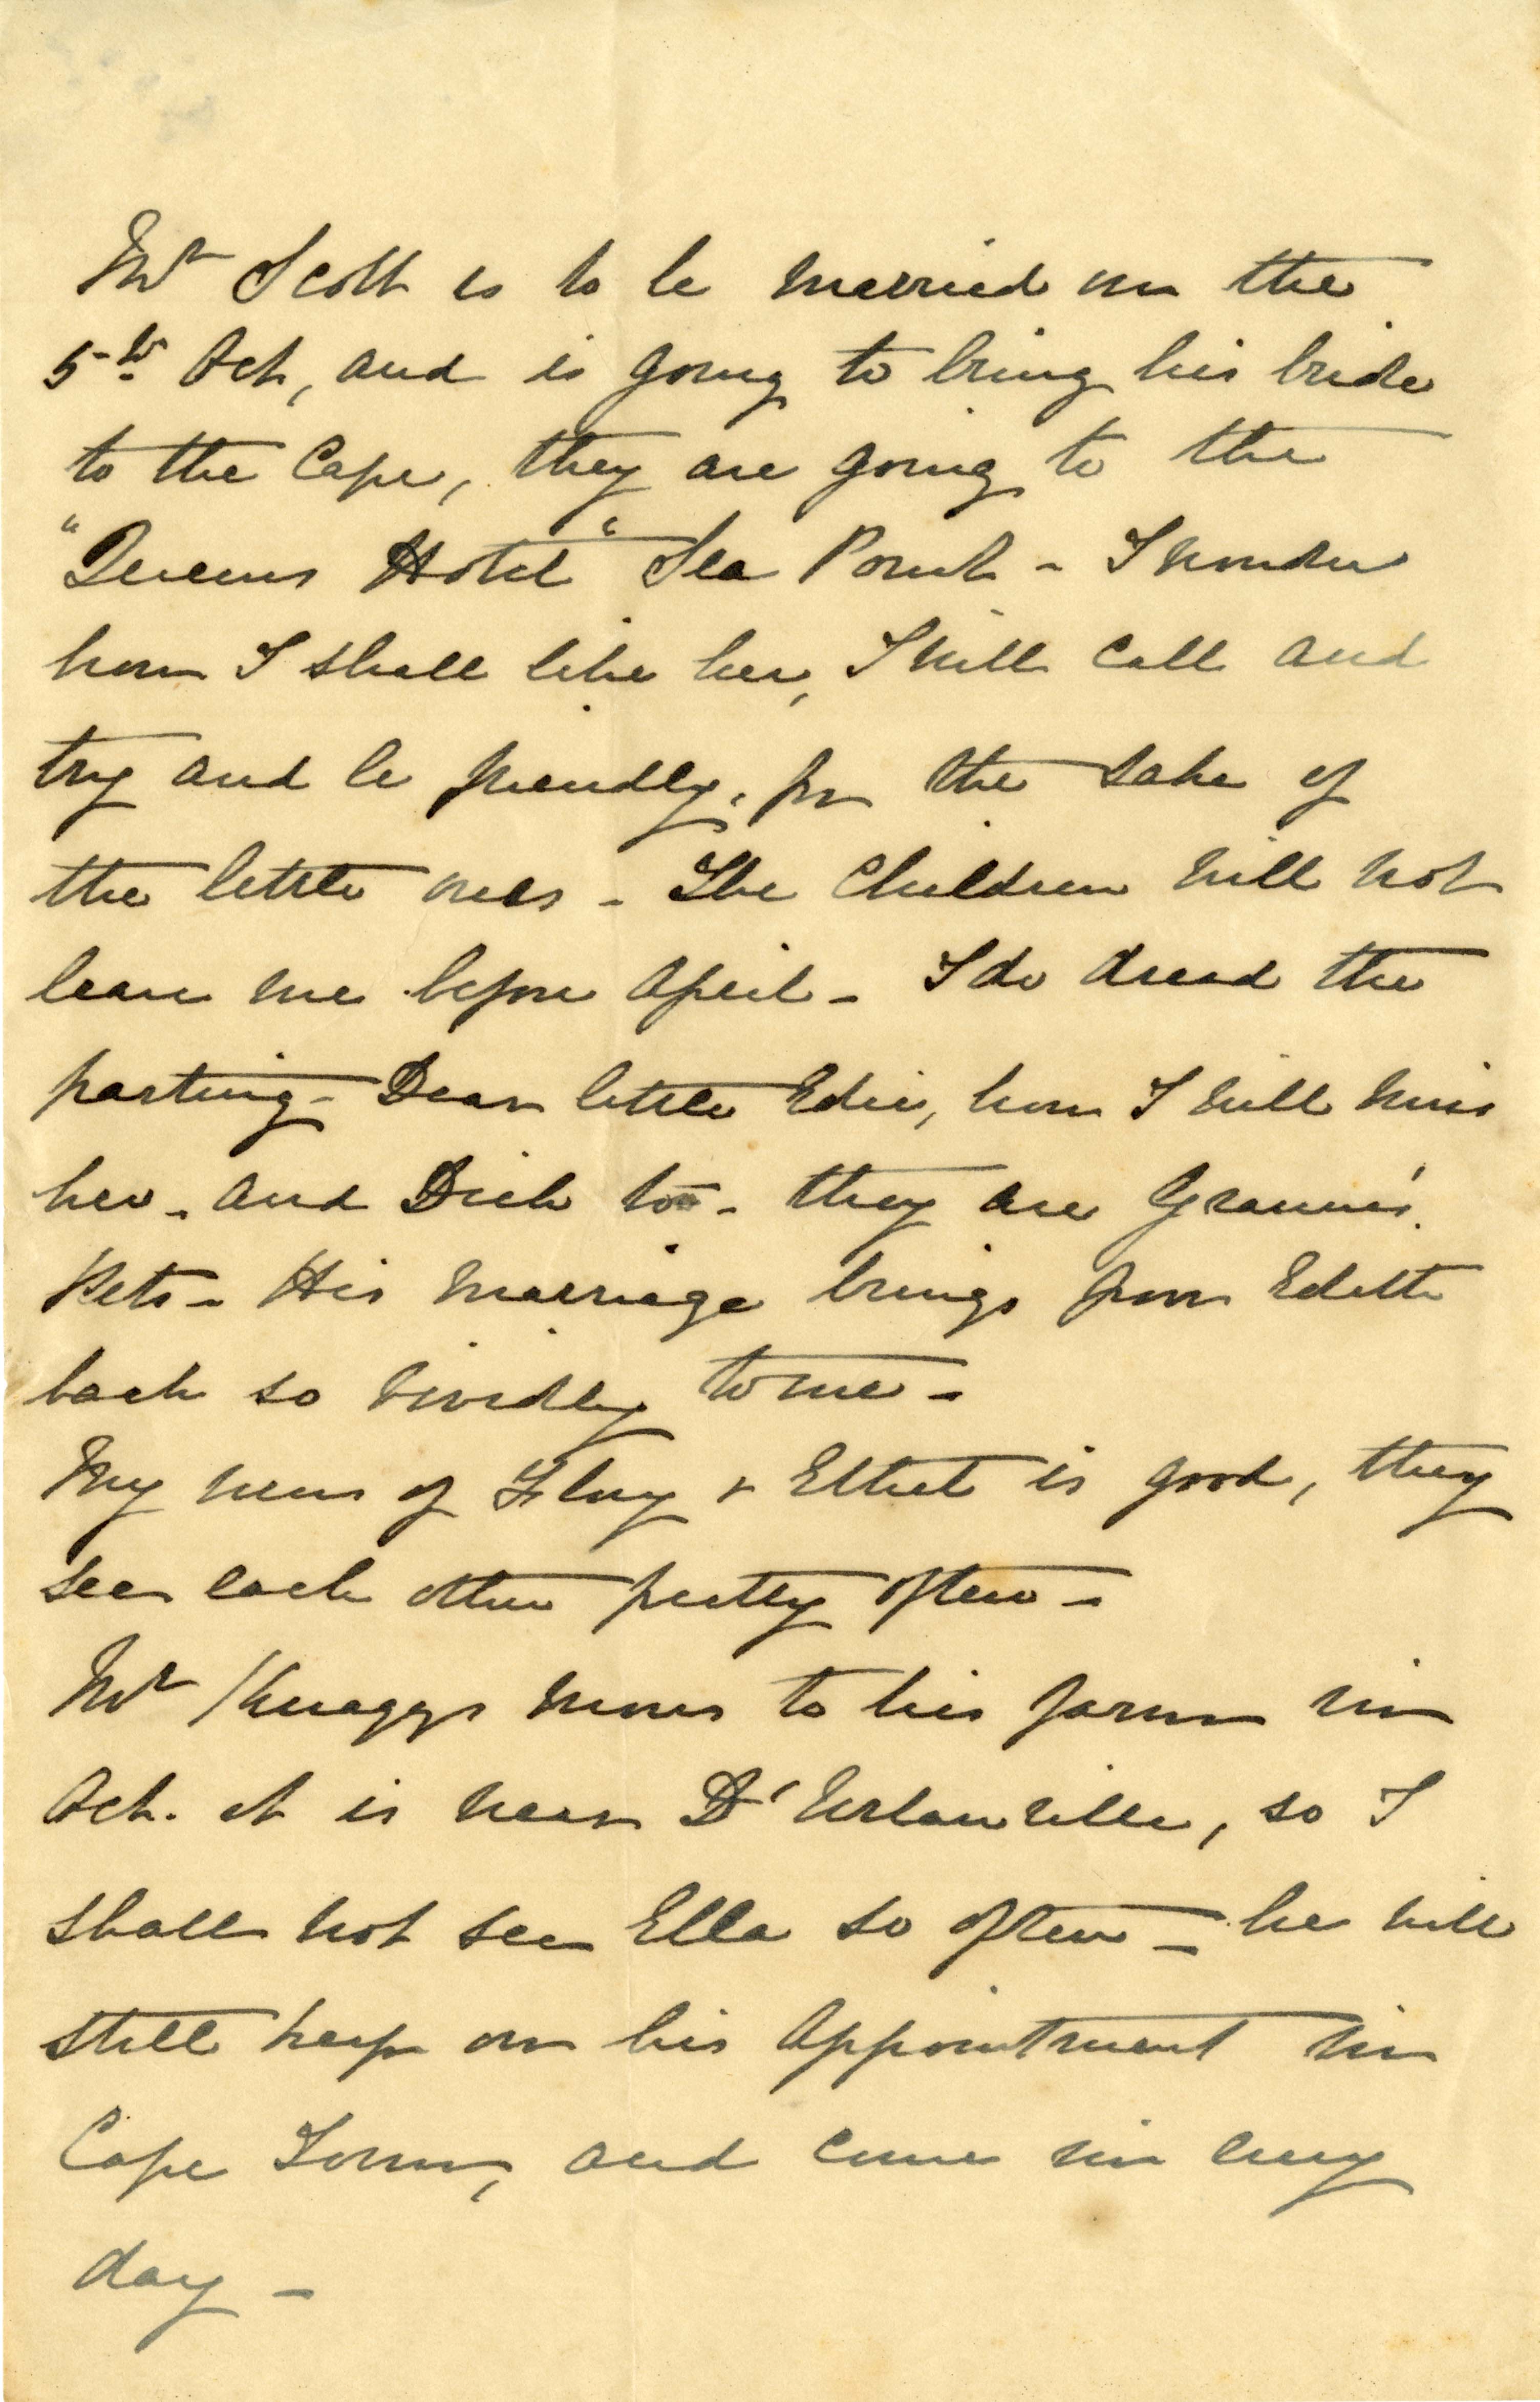 Mr Scott is to be married on the
5th Oct, and is going to bring his bride
to the Cape, they are going to the
"Queens Hotel" Sea Point - I wonder
how I shall like her, I will call and
try and be friendly, for the sake of
the little ones - The Children will not
leave me before April - I do dread the
parting - Dear little Edie, how I will miss
her - and Dick too - they are Grannie's
Pets - His marriage brings poor Edith
back so vividly to me -
My news of Flory & Ethel is good, they
see each other pretty often -
Mr Knaggs moves to his farm in
Oct. it is near D'Urbanville, so I
shall not see Ella so often - he will
still keep on his appointment in
Cape Town, and come in every
day -